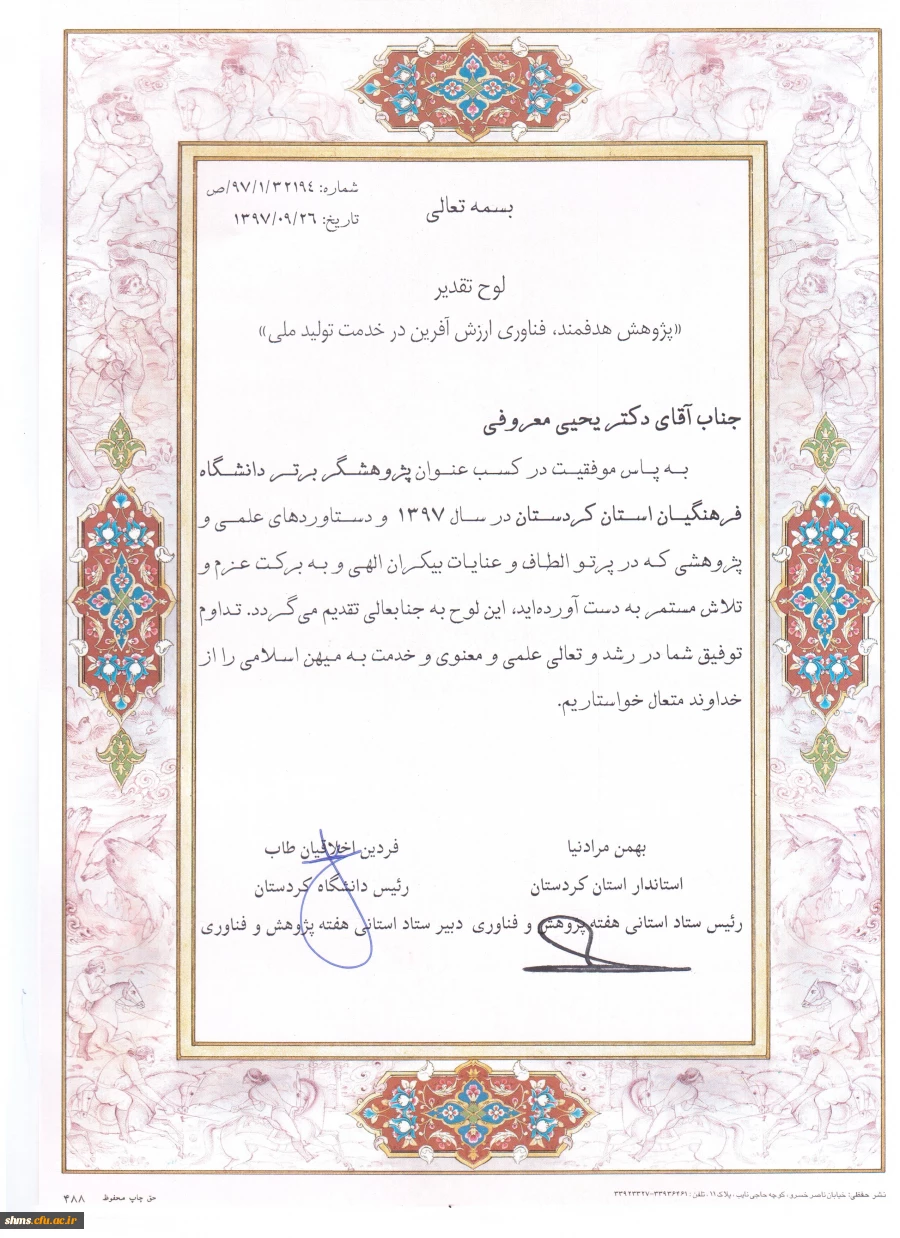 شماره: ۹۷/۱/۳۲۱۹۴/ص
تاریخ: ۱۳۹۷/۰۹/۲۶
بسمه تعالی
لوح تقدیر
«پژوهش هدفمند، فناوری ارزش آفرین در خدمت تولید ملی»
جناب آقای دکتر یحیی معروفی
به پاس موفقیت در کسب عنوان پژوهشگر برتر دانشگاه
فرهنگیان استان کردستان در سال ۱۳۹۷ و دستاوردهای علمی و
پژوهشی که در پرتو الطاف و عنایات بیکران الهی و به برکت عزم و
تلاش مستمر به دست آورده‌اید، این لوح به جنابعالی تقدیم می‌گردد. تداوم
توفیق شما در رشد و تعالی علمی و معنوی و خدمت به میهن اسلامی را از
خداوند متعال خواستاریم.
بهمن مرادنیا
استاندار استان کردستان
رئیس ستاد استانی هفته پژوهش و فناوری
فردین اخلاقیان طاب
رئیس دانشگاه کردستان
دبیر ستاد استانی هفته پژوهش و فناوری
نشر حفظی: خیابان ناصر خسرو، کوچه حاجی نایب، پلاک ۱۱، تلفن: ۳۳۹۳۶۴۶۱-۳۳۹۲۳۳۲۷
حق چاپ محفوظ ۴۸۸
shms.cfu.ac.ir